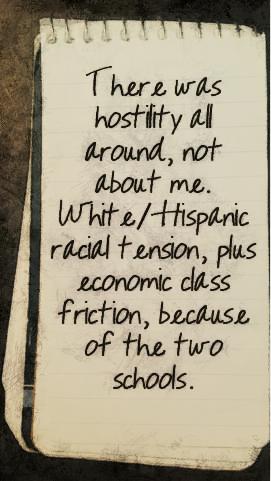 There was
hostility all
around, not
about me.
White/Hispanic
racial tension, plus
economic class
friction, because
of the two
schools.